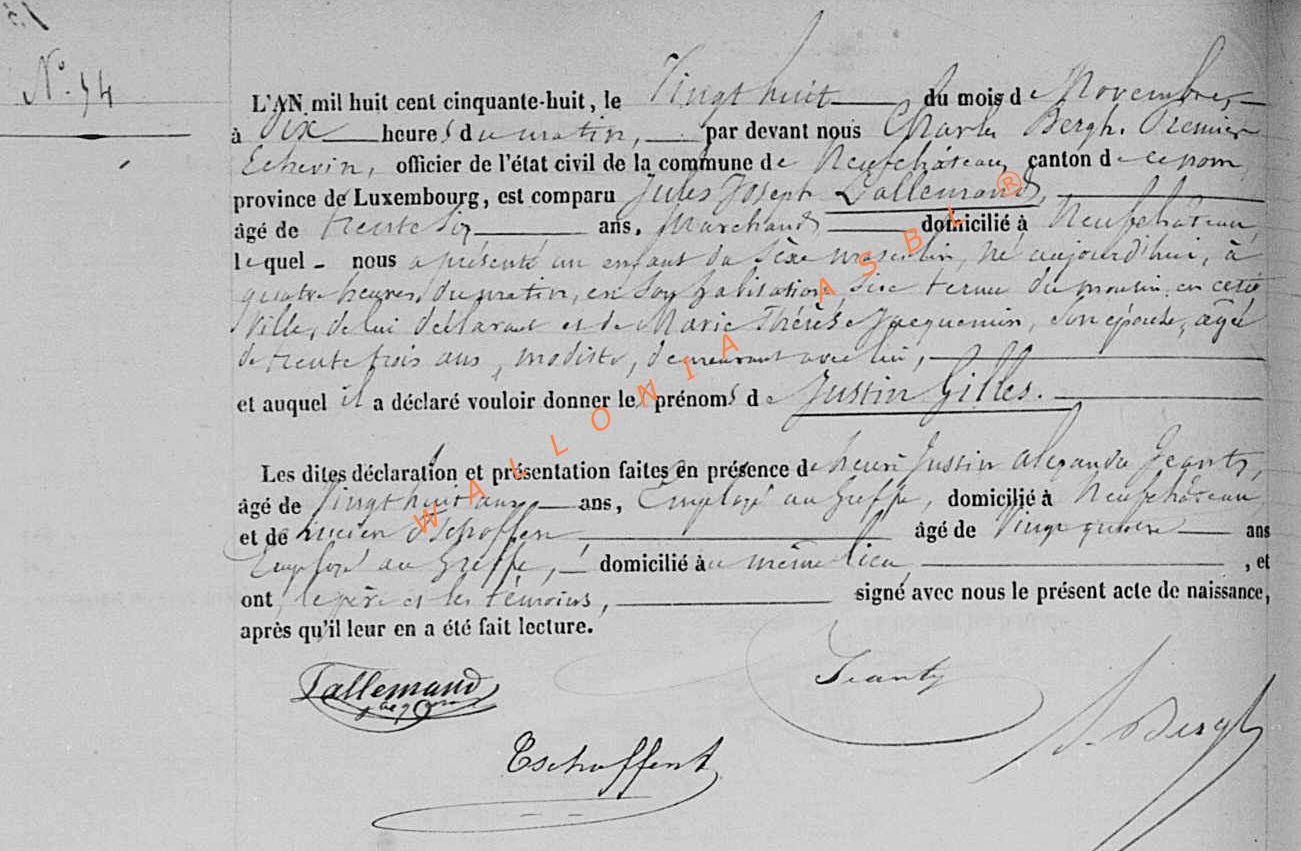 N° 54
L'AN mil huit cent cinquante-huit, le Vingt huit du mois de Novembre,
à Dix heures du matin, par devant nous Charles Bergh, Premier
Echevin, officier de l'état civil de la commune de Neufchâteau, canton de ce nom,
province de Luxembourg, est comparu Jules Joseph Lallemand,
âgé de trente six ans, Marchand domicilié à Neufchâteau,
lequel nous a présenté un enfant du sèxe masculin, né aujourd'hui, à
quatre heures, du matin, en son habitation, sise du moulin en cette
Ville, de lui déclarant et de Marie Thérèse Jacquemin, son épouse, agée
de trente trois ans, modiste, demeurant avec lui,
et auquel il a déclaré vouloir donner les prénoms de Justin Gilles.
Les dites déclaration et présentation faites en présence de henri Justin Alexandre Jeanty,
âgé de Vingt huit ans ans, Employé au Greffe, domicilié à Neufchâteau,
et de Lucien Tschoffen, âgé de Vingt ans
Employé au Greffe, domicilié au même lieu, et
ont le père et les témoins, signé avec nous le présent acte de naissance,
après qu'il leur en a été fait lecture.
Lallemand
Jacquemin
Jeanty
Tschoffen
Bergh
WALLONIA ASBL ®